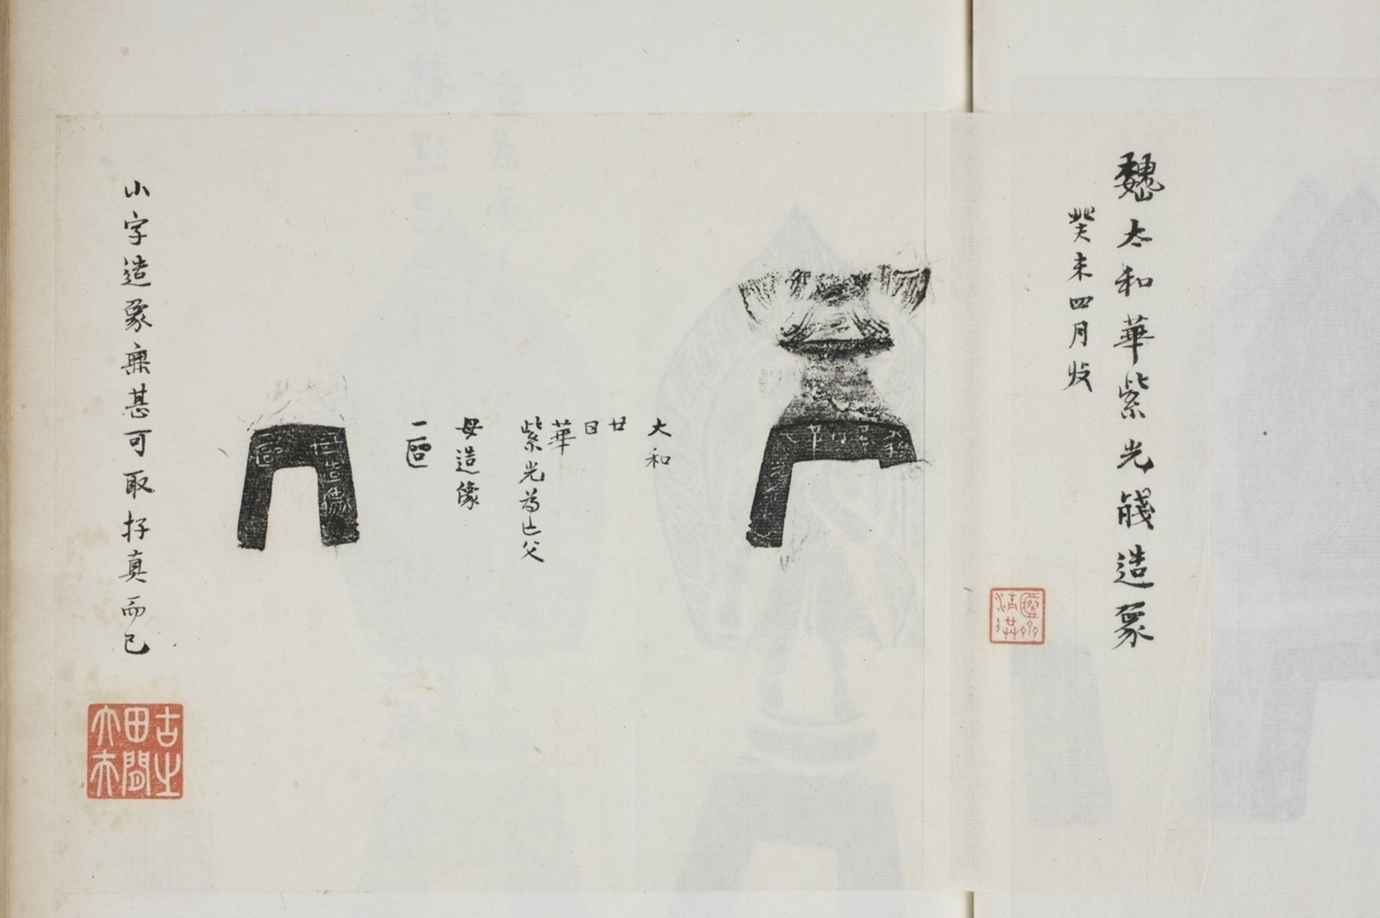 魏太和華紫光殘造象
癸未四月收
大和
廿
日
華
紫光為亡父
母造像
一區
小字造象無甚可取存真而已